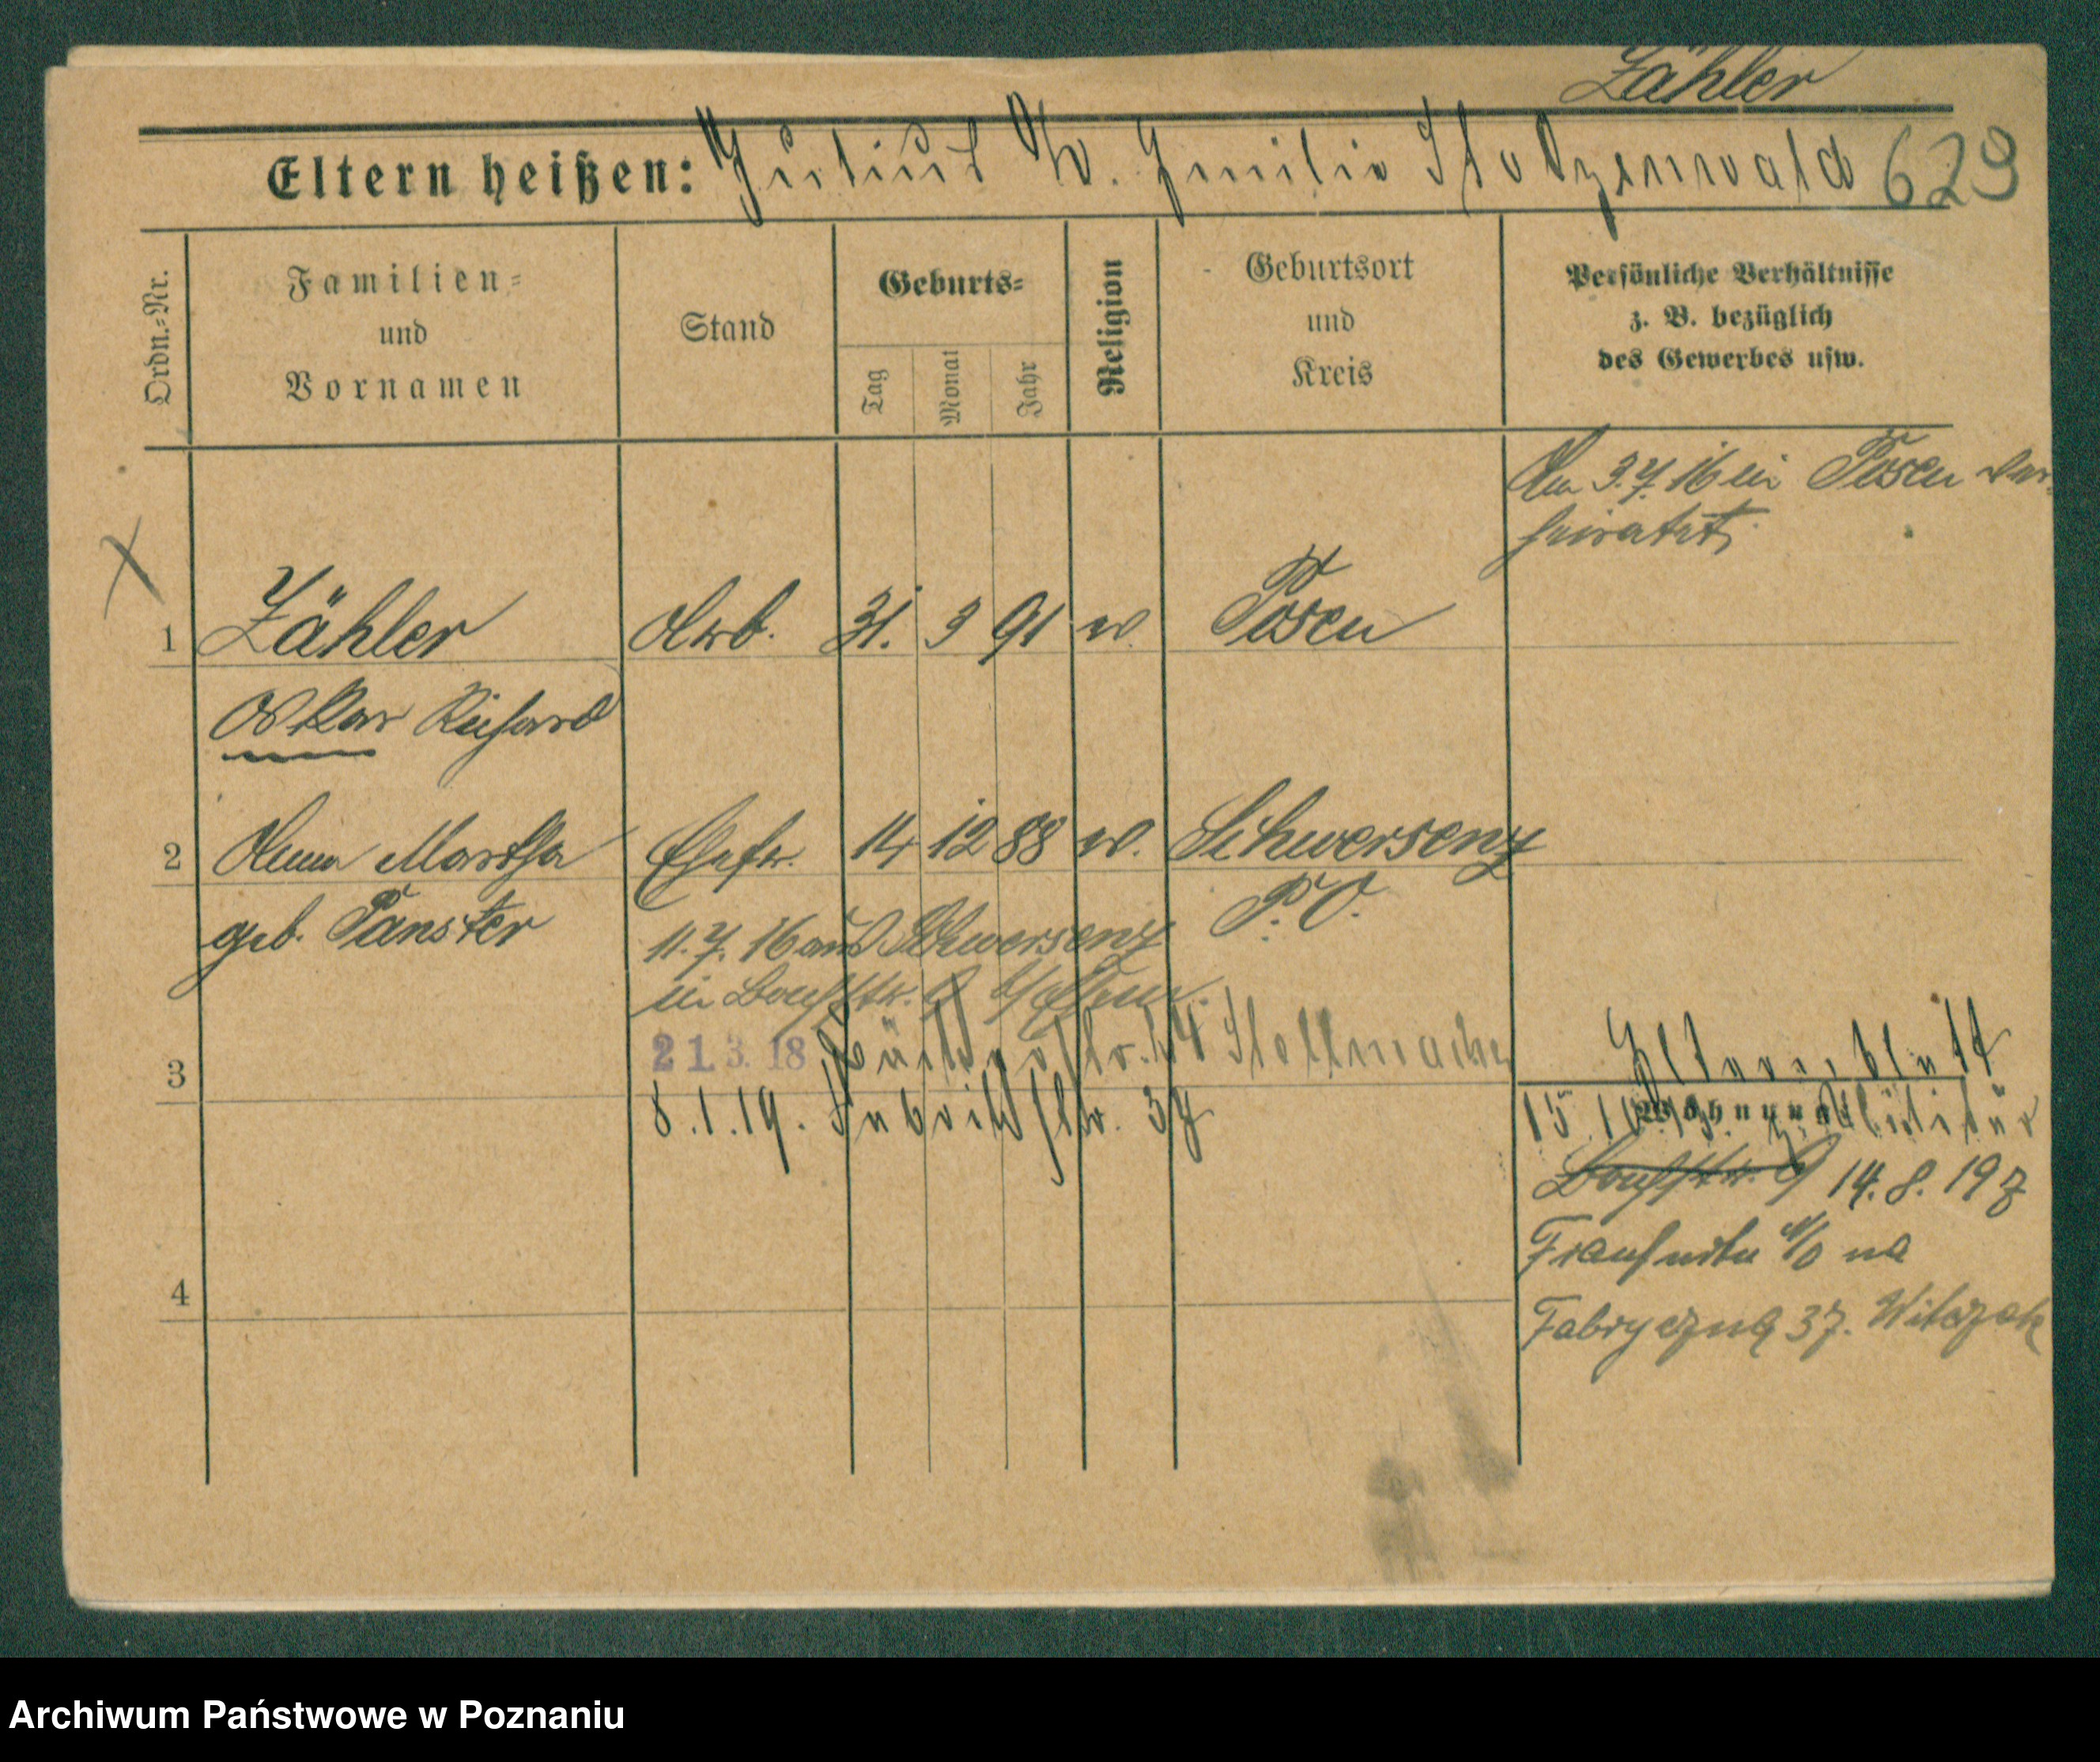 Zähler
Eltern heißen: Julius W. Emilie Stolzenwald 629
Ordn.=Nr.
Familien=
und
Vornamen
Stand
Geburts=
Tag
Monat
Jahr
Religion
Geburtsort
und
Kreis
Persönliche Verhältnisse
z. B. bezüglich
des Gewerbes usw.
Am 3.7.16 in Posen ver-
heiratet.
1 Zähler Arb. 31. 3 91 ev. Posen
Oskar Richard
2 Anna Martha Ehefr. 14 12 88 ev. Schwersenz
geb. Panster P. O.
11.7.16 aus Schwersenz
in
3 21.3.18 54 Stellmacher
8.1.19. Fabrikstr. 37
Wohnung:
15 Militär
9 14.8.19 z
Frankfurtu a/O na
4
Fabryczną 37. Witczak
Archiwum Państwowe w Poznaniu